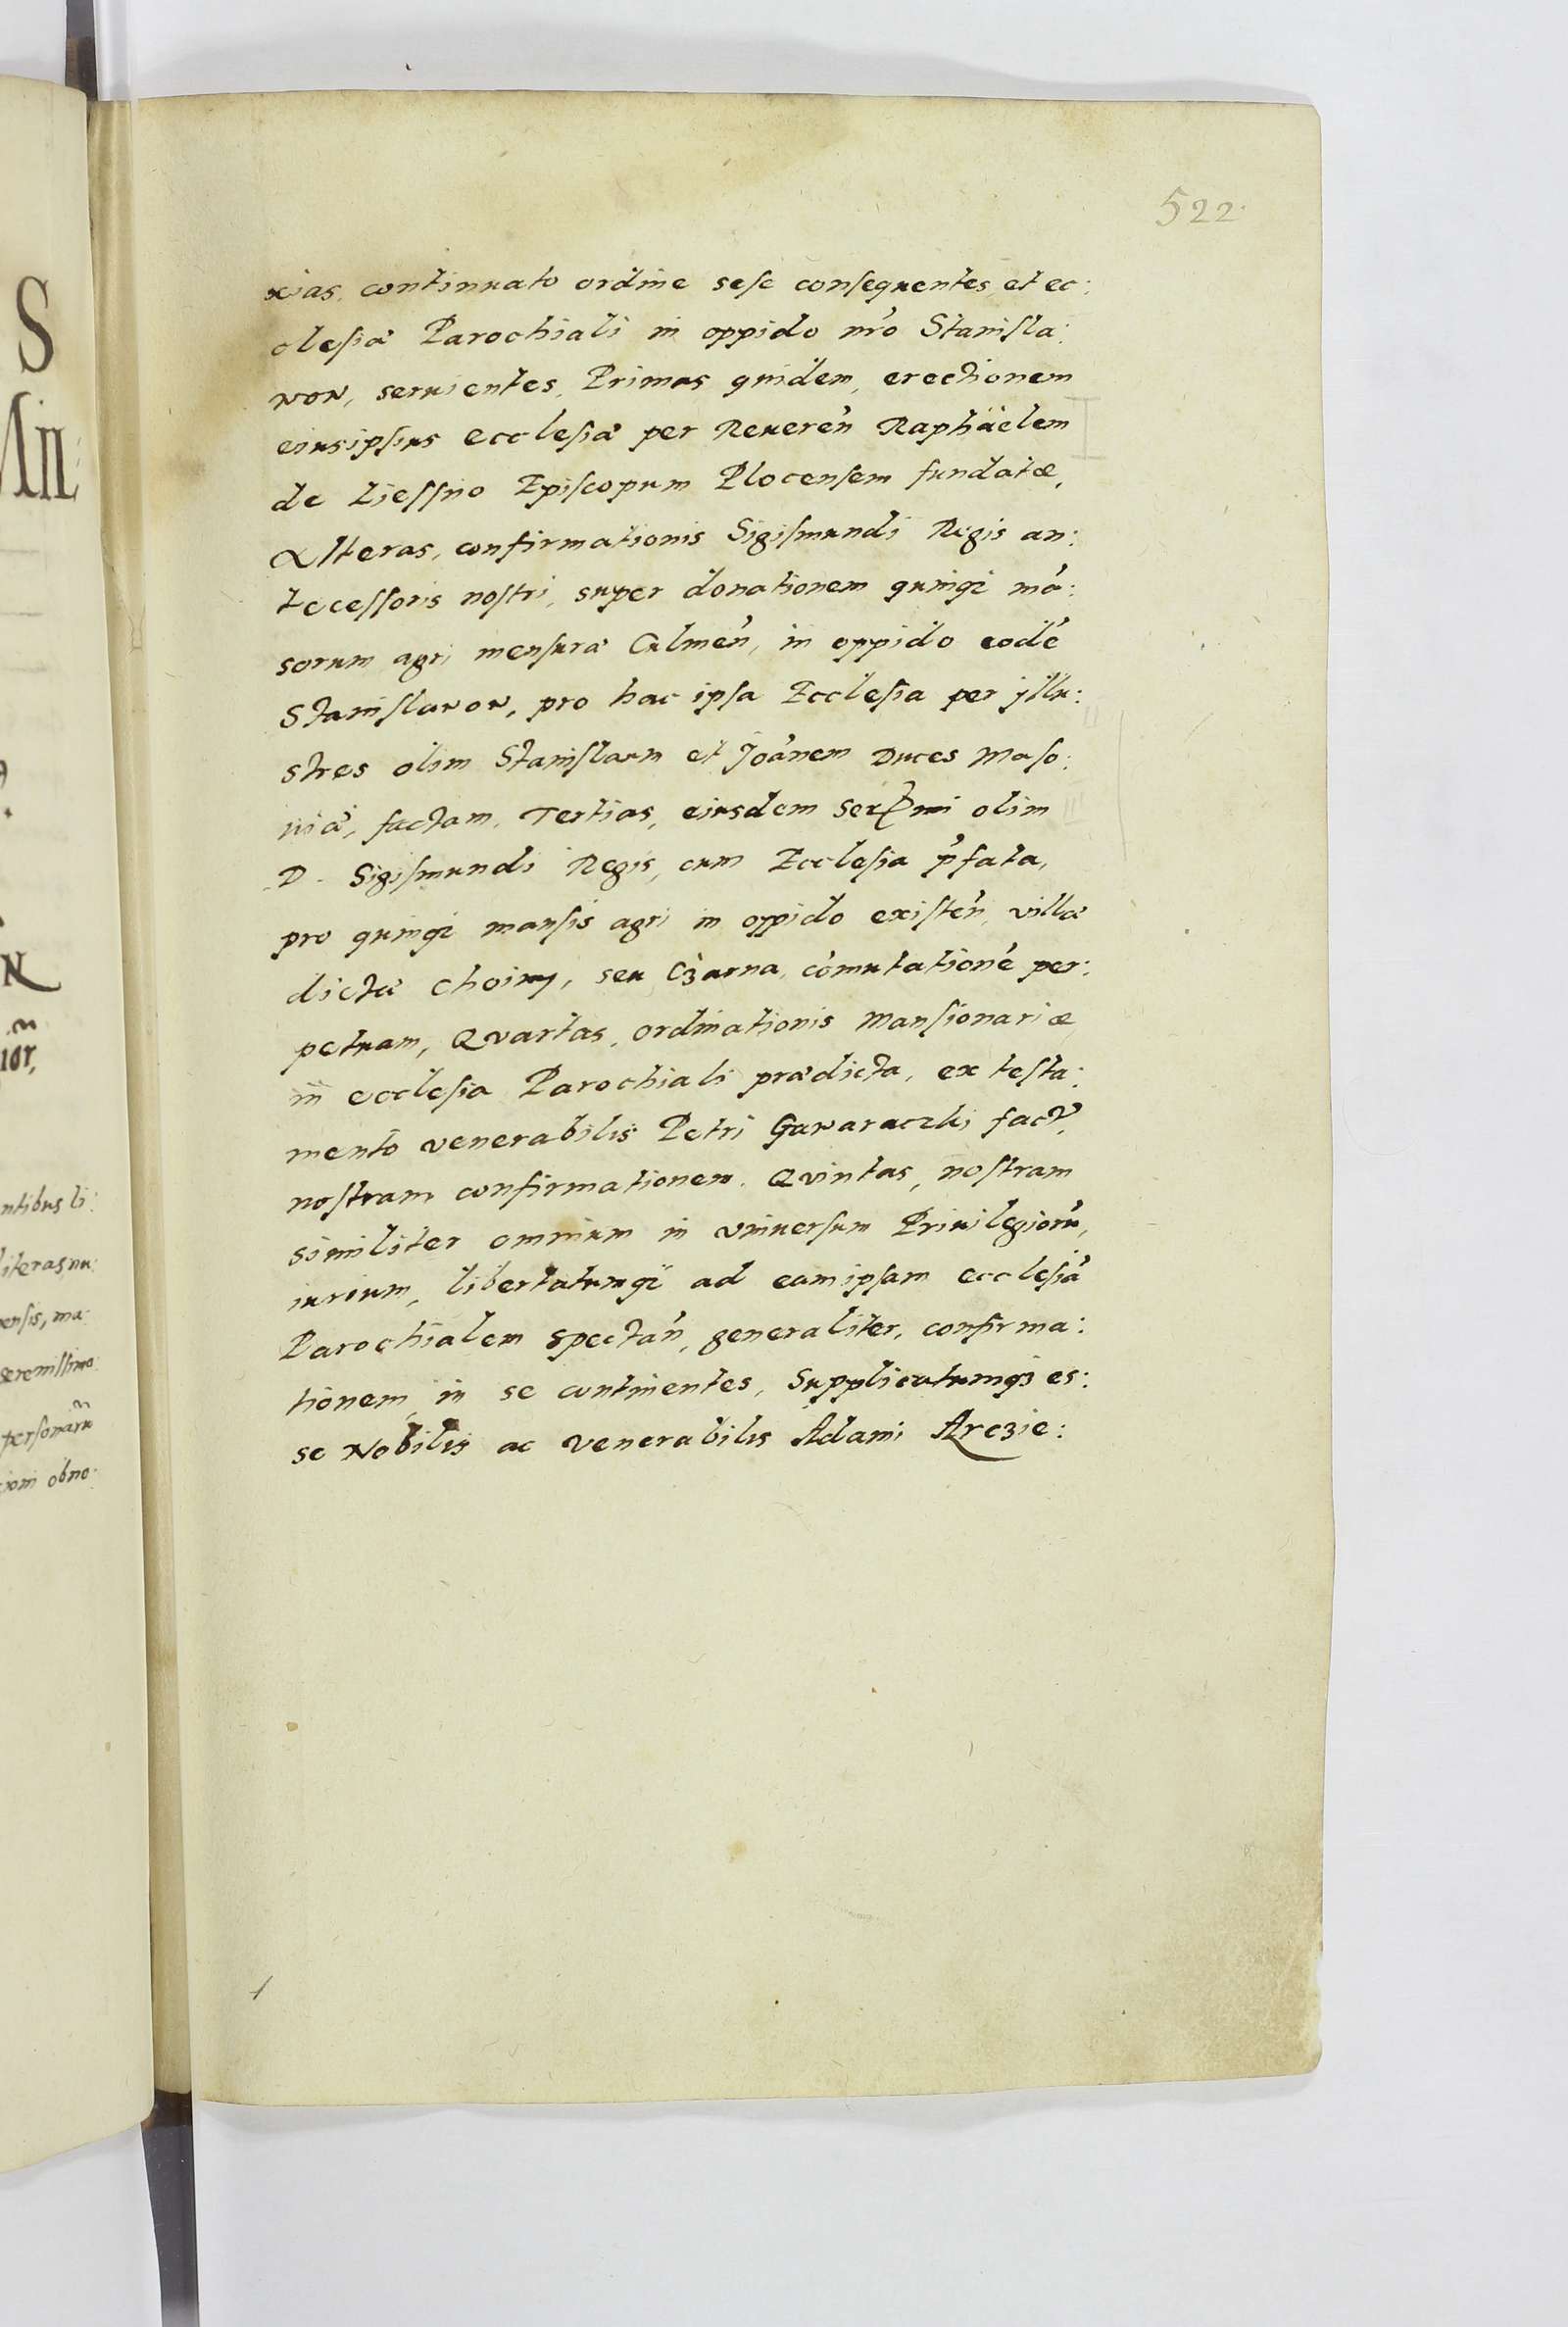 522.
xias, continuato ordine sese consequentes, et ec:
clesiæ Parochiali in oppido nr̃o Stanisla:
wow, seruientes, Primas quidem, erectionem
eiusipsius ecclesiæ per Reueren̄ Raphäelem
de Liessno Episcopum Plocensem fundatæ,
Alteras, confirmationis Sigismundi Regis an:
tecessoris nostri, super donationem quinqꝫ mā:
sorum agri mensuræ Culmen̄, in oppido eodē
Stanislawow, pro hac ipsa Ecclesia per jllu:
stres olim Stanislaum et Joānem Duces Maso:
uiæ, factam, Tertias, eiusdem Serᵐⁱ olim
D. Sigismundi Regis, cum Ecclesia p̄fata,
pro quinqꝫ mansis agri in oppido existen̄, villæ
dictæ choiny, seu Czarna, cōmutationē per:
petuam, Qvartas, ordinationis Mansionariæ
in ecclesia Parochiali prædicta, ex testa:
mento venerabilis Petri Gawaraczki fact̃,
nostram confirmationem. Qvintas, nostram
similiter omnium in vniuersum Priuilegiorū,
iurium, libertatumqꝫ ad eamipsam ecclesiā
Parochialem spectan̄, generaliter, confirma:
tionem, in se continentes, Supplicatumqꝫ es:
se Nobilis ac venerabilis Adami Arczie:
S
ntibus li:
literas, nu:
ensis, ma:
serenissimo:
personarū
ioni obno: